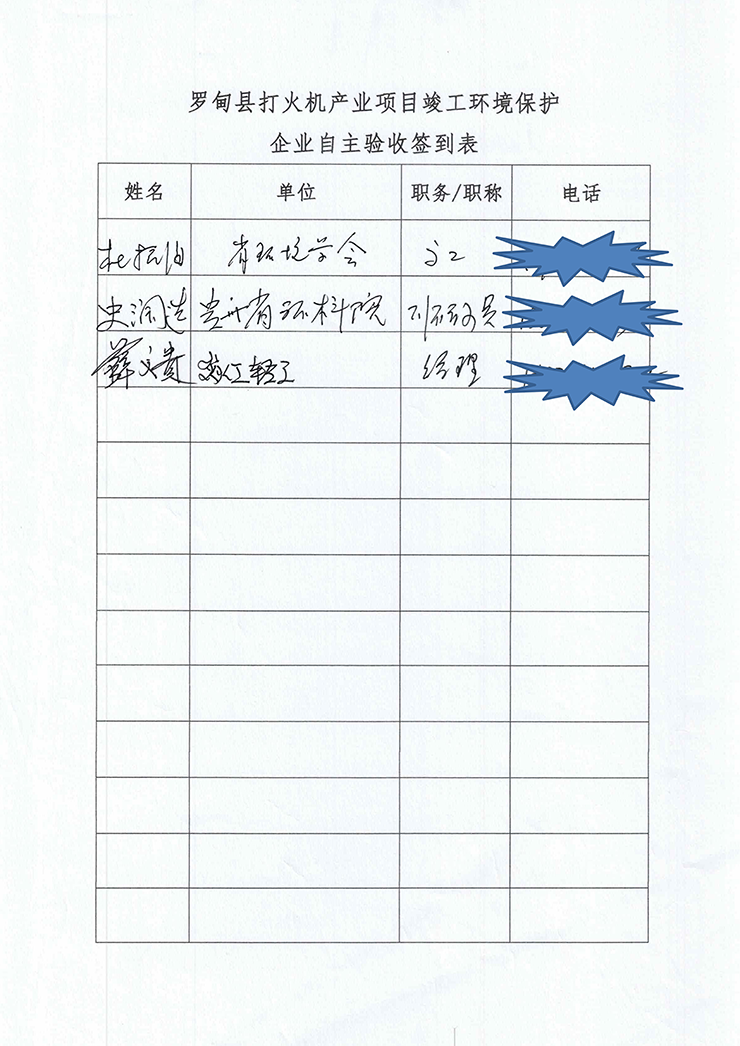 罗甸县打火机产业项目竣工环境保护
企业自主验收签到表
姓名 单位 职务/职称 电话
省环境学会 高工
贵州省环科院 副研究员
薛文贵 经理